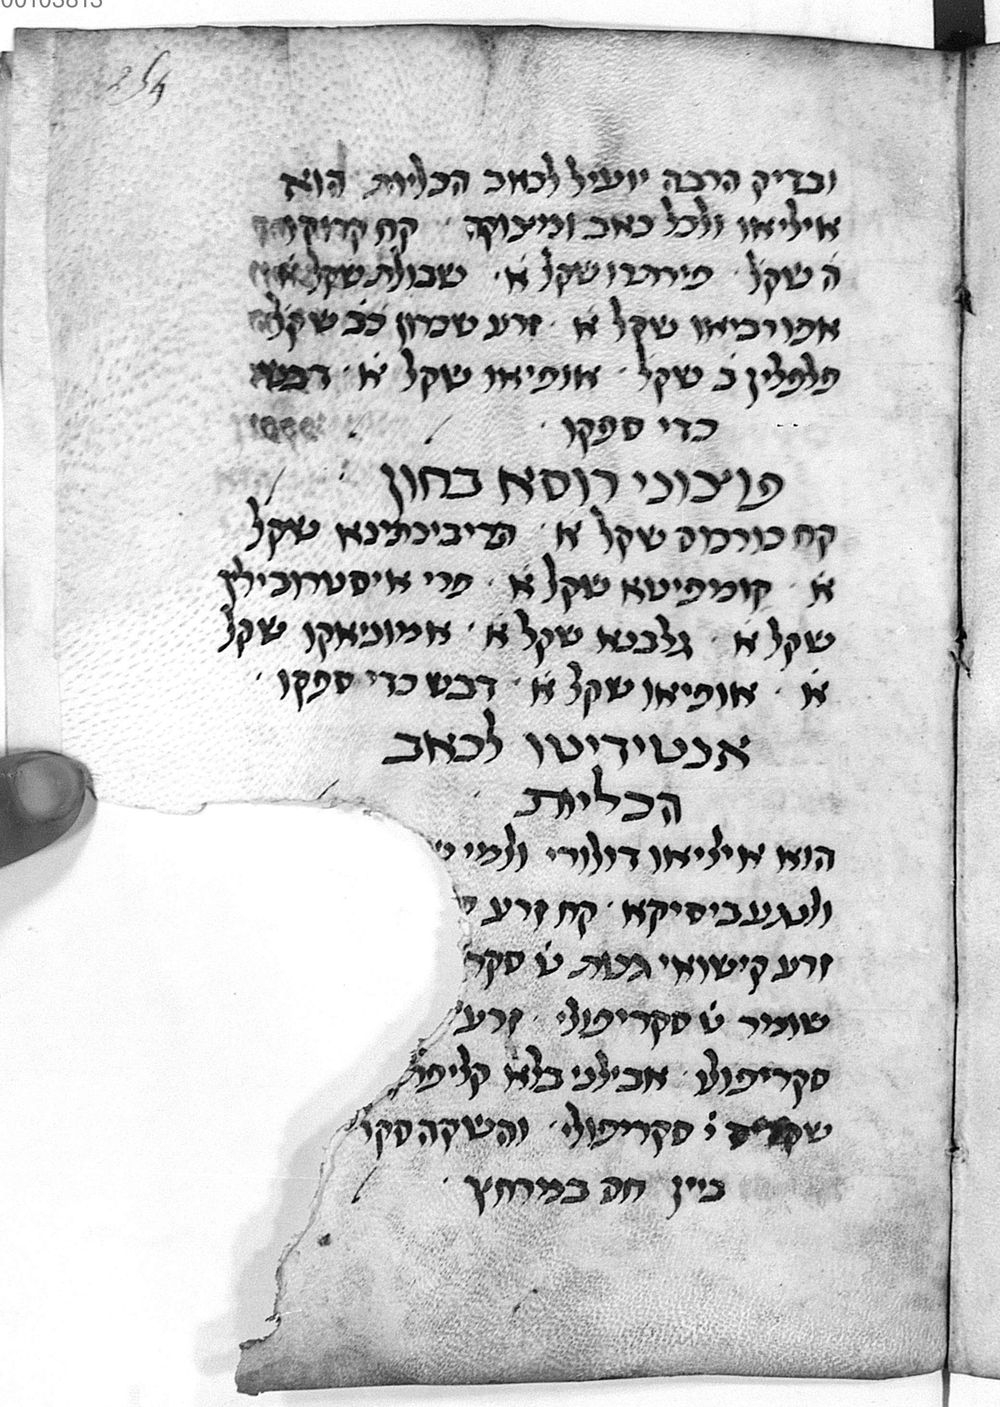 00105813
254
ובדיק הרבה יועיל לכאב הכליות הוא
איליאו ולכל כאב ומצוקה · קח קרוקו
ה שקל · פירתרו שקל א · שבולת שקל
אפורביאו שקל א · זרע שכרון כ̇ב̇ שקל
פלפלין כ̇ שקל · אופיאו שקל א̇ · דבש
כדי ספקו ·
פוצוני רוסא בחון
קח כורמוס שקל א̇ · הדיבוכתינא שקל
א̇ · קומפיטא שקל א̇ · פרי איסטרובילין
שקל א̇ · גלבנא שקל א̇ · אמוניאקו שקל
א̇ · אופיאו שקל א̇ · דבש כדי ספקו ·
אנטידיטו לכאב
הכליות
הוא איליאו דולורי ולמי ש
ולנגע ביסיקא · קח זרע
זרע קישואי גנות ט̇ סקר
שומיר ט̇ סקריפולי · זרע
סקריפולו · אבילני בלא קליפת
י̇ סקריפולי · והשקה סקר
ביין חם במרחץ ·